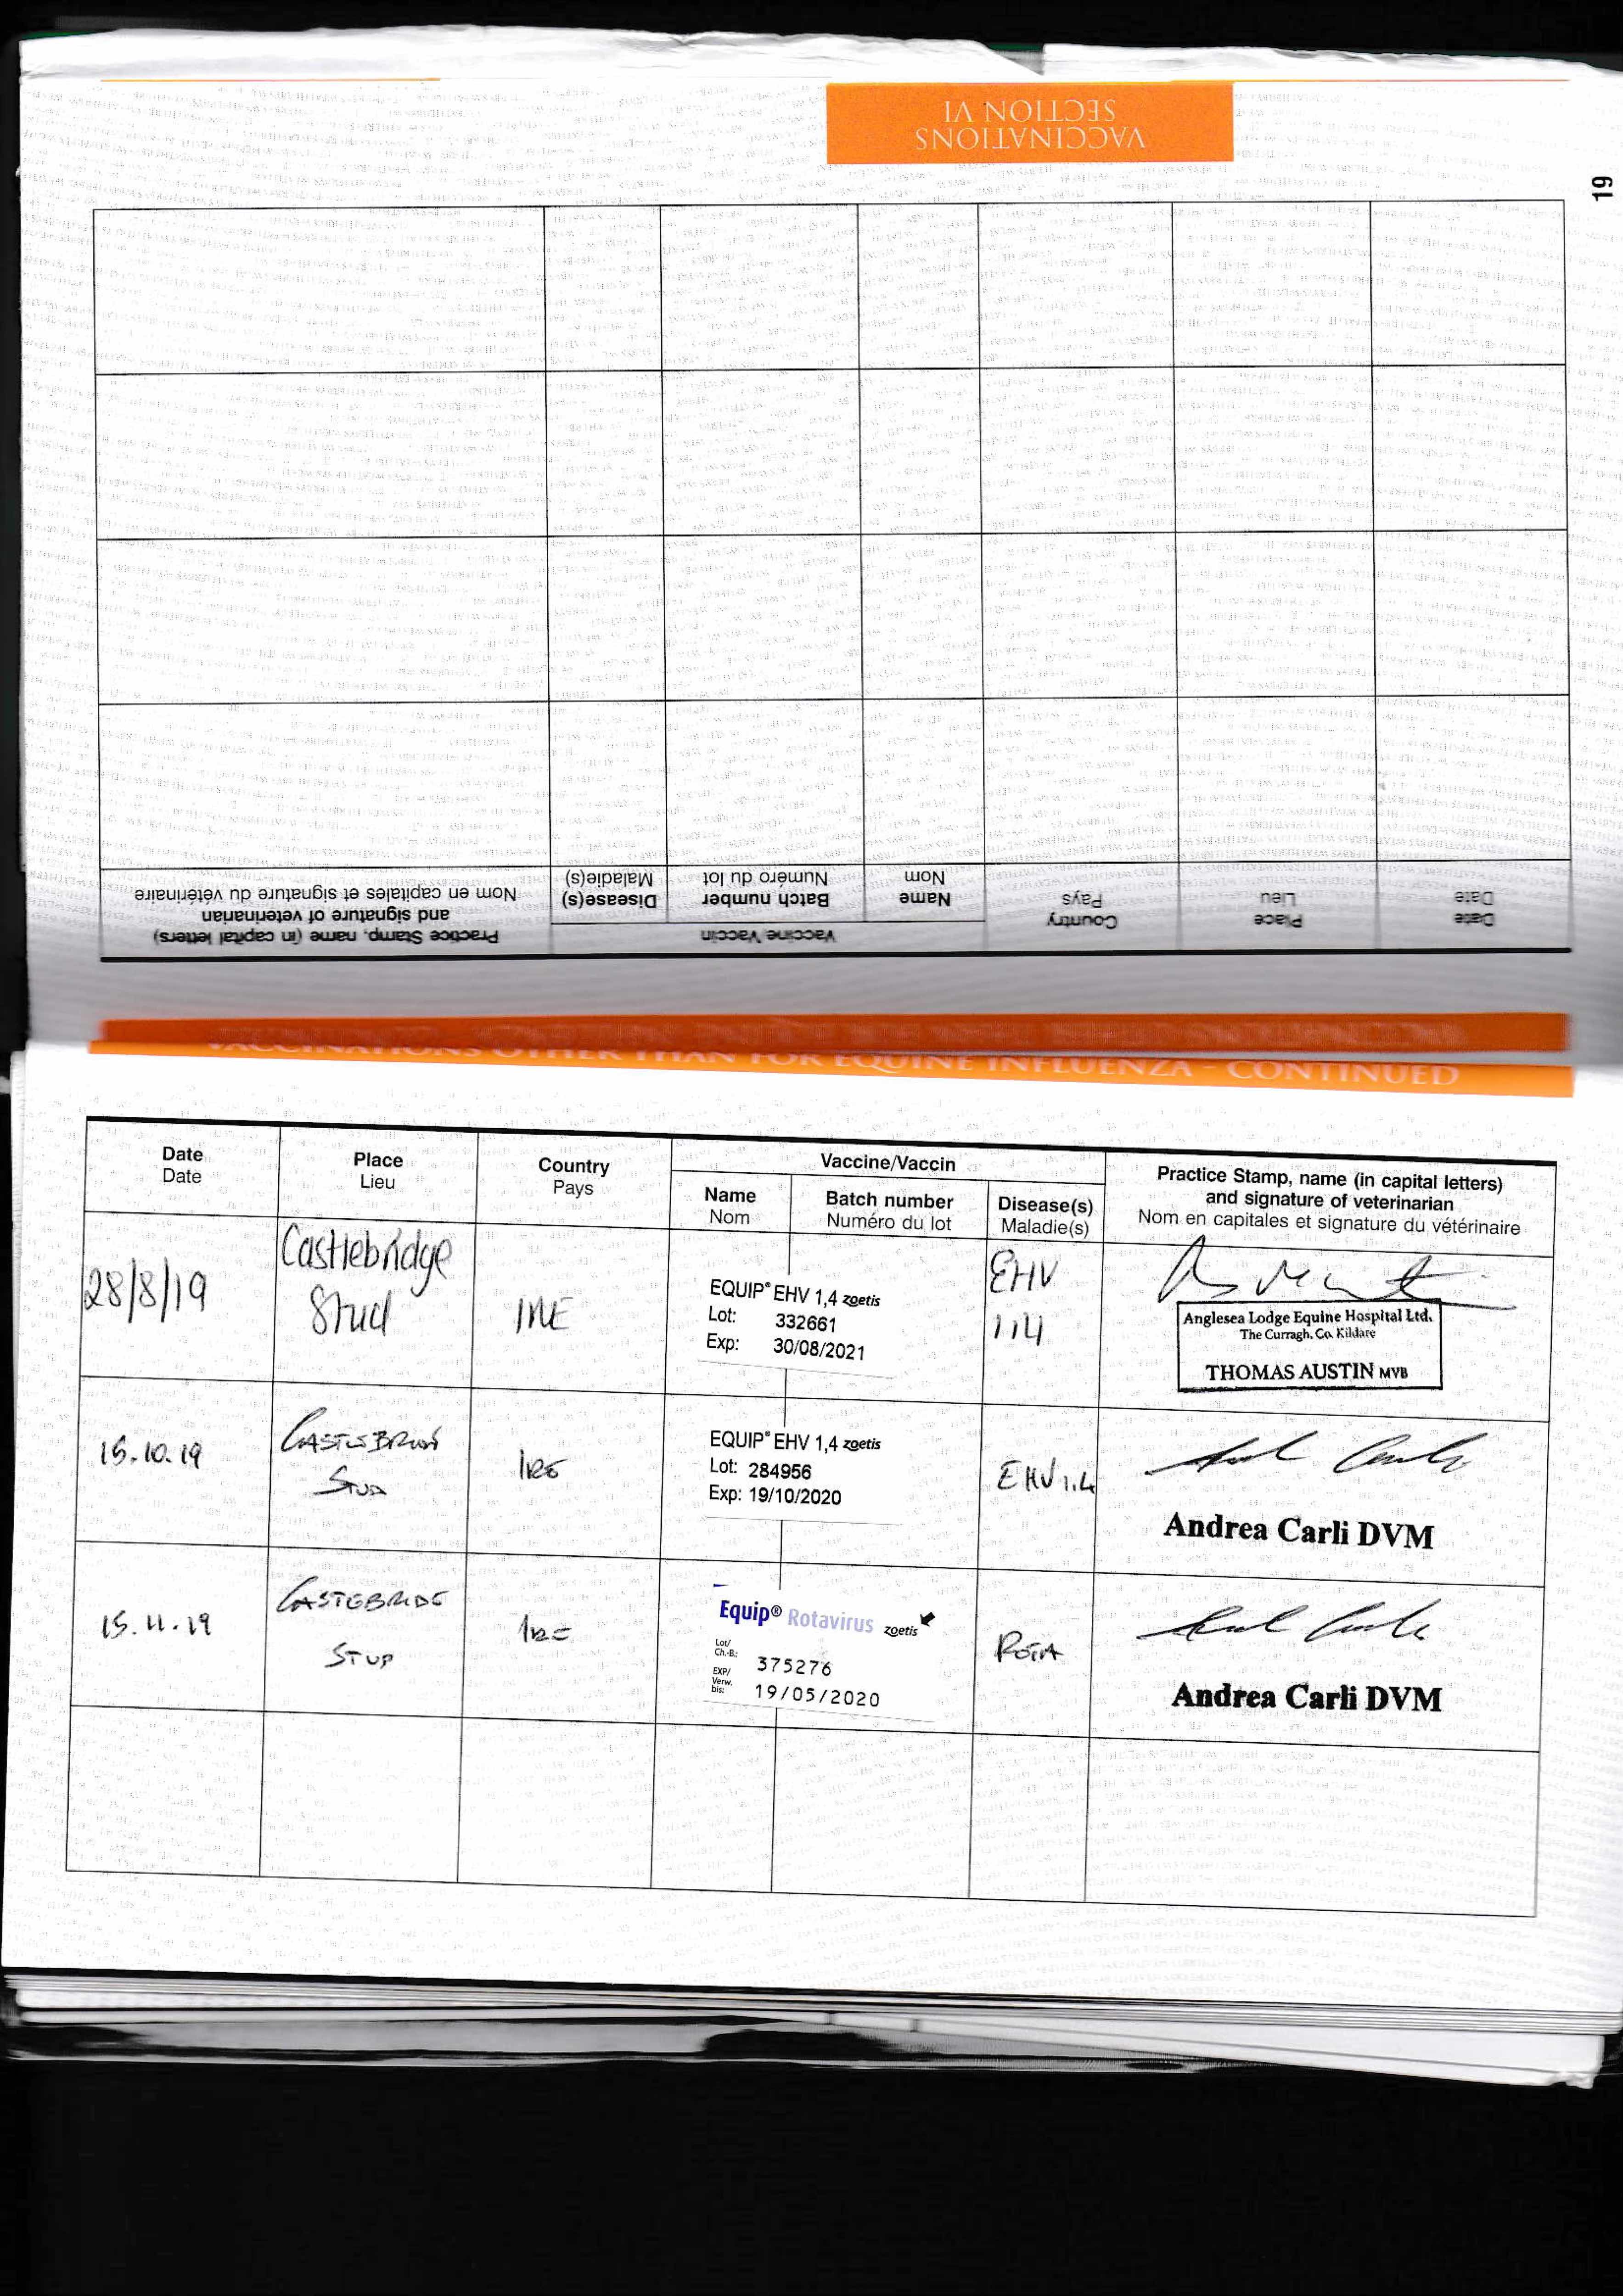 VACCINATIONS
SECTION VI
19
Date
Date
Place
Lieu
Country
Pays
Vaccine Vaccin
Name
Nom
Batch number
Numéro du lot
Disease(s)
Maladie(s)
Practice Stamp, name (in capital letters)
and signature of veterinarian
Nom en capitales et signature du vétérinaire
VACCINATIONS OTHER THAN FOR EQUINE INFLUENZA - CONTINUED
Date
Date
Place
Lieu
Country
Pays
Vaccine/Vaccin
Name
Nom
Batch number
Numéro du lot
Disease(s)
Maladie(s)
Practice Stamp, name (in capital letters)
and signature of veterinarian
Nom en capitales et signature du vétérinaire
28/8/19
Castlebridge
Stud
IRE
EQUIP® EHV 1,4 zoetis
Lot: 332661
Exp: 30/08/2021
EHV
1,4
Anglesea Lodge Equine Hospital Ltd.
The Curragh, Co. Kildare
THOMAS AUSTIN MVB
15.10.19
Stud
IRE
EQUIP® EHV 1,4 zoetis
Lot: 284956
Exp: 19/10/2020
EHV 1.4
Andrea Carli DVM
15.11.19
CASTEBRIDE
STUD
IRE
Equip® Rotavirus zoetis
Lot/
Ch.-B.: 375276
EXP/
Verw.
bis: 19/05/2020
ROTA
Andrea Carli DVM